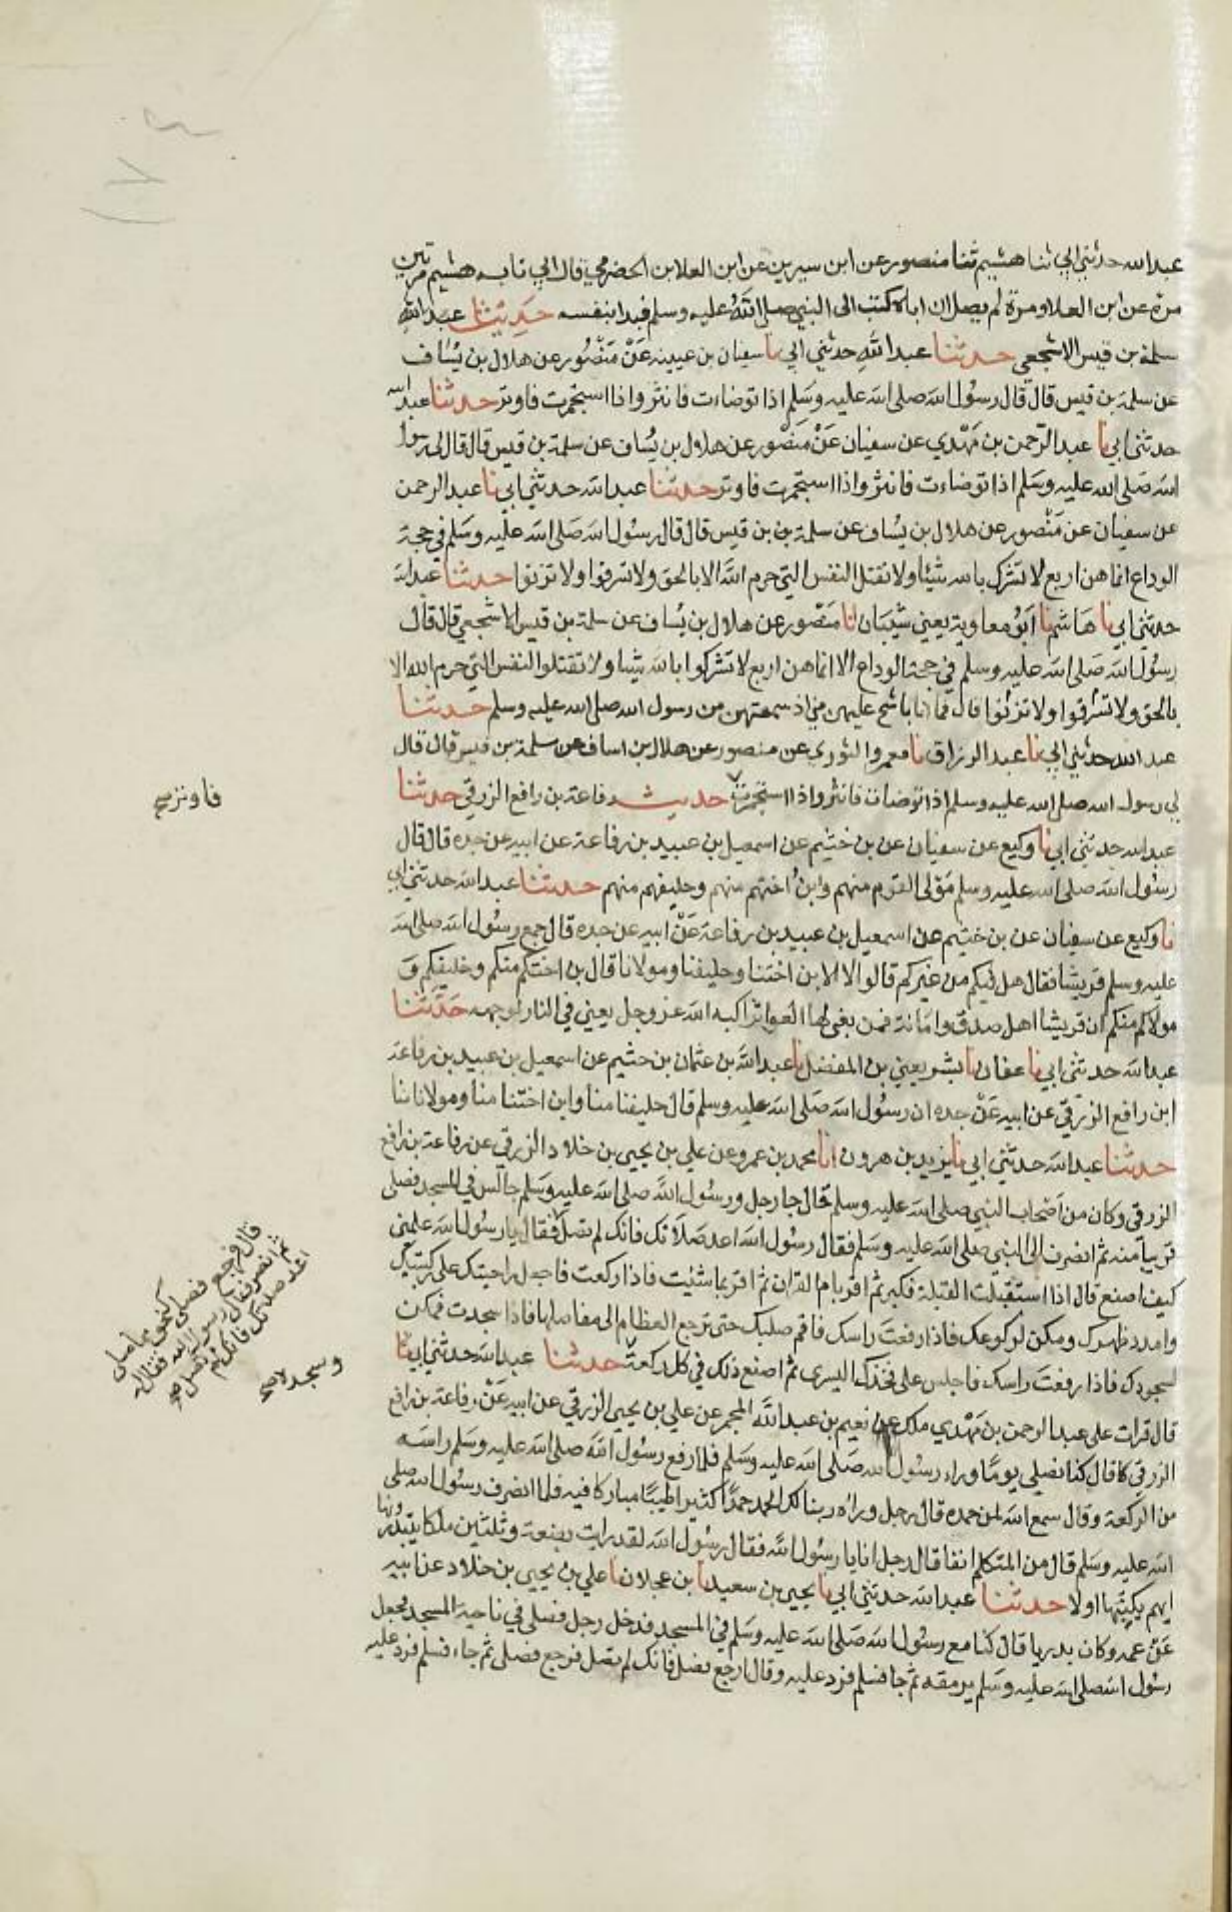 عبدالله حدثني ابي ثنا هشيم ثنا منصور عن ابن سيرين عن ابن العلا بن الحضرمي قال ابي ثنا به هشيم مرتين
مرة عن ابن العلا ومرة لم يصل ان اباه كتب الى النبي صلى الله عليه وسلم فبدا بنفسه حديث
سلمة بن قيس الاشجعي حدثنا عبدالله حدثني ابي نا سفيان بن عيينه عن منصور عن هلال بن يساف
عن سلمة بن قيس قال قال رسول الله صلى الله عليه وسلم اذا توضات فانثر واذا استجمرت فاوتر حدثنا عبدالله
حدثني ابي نا عبدالرحمن بن مهدي عن سفيان عن منصور عن هلال بن يساف عن سلمة بن قيس قال قال لي رسول
الله صلى الله عليه وسلم اذا توضات فانثر واذا استجمرت فاوتر حدثنا عبدالله حدثني ابي نا عبدالرحمن
عن سفيان عن منصور عن هلال بن يساف عن سلمة بن بن قيس قال قال رسول الله صلى الله عليه وسلم في حجة
الوداع انما هن اربع لا تشرك بالله شيئا ولا تقتل النفس التي حرم الله الا بالحق ولا تسرقوا ولا تزنوا حدثنا عبدالله
حدثني ابي نا هاشم نا ابو معاوية يعني شيبان نا منصور عن هلال بن يساف عن سلمة بن قيس الاشجعي قال قال
رسول الله صلى الله عليه وسلم في حجة الوداع الا انما هن اربع لا تشركوا بالله شيا ولا تقتلوا النفس التي حرم الله الا
بالحق ولا تسرقوا ولا تزنوا قال فما انا باشح عليهن مني اذ سمعتهن من رسول الله صلى الله عليه وسلم حدثنا
عبدالله حدثني ابي نا عبدالرزاق نا معمر والثوري عن منصور عن هلال بن اساف عن سلمة بن قيس قال قال
لي رسول الله صلى الله عليه وسلم اذا توضات فانثر واذا استجمرت حديث رفاعة بن رافع الزرقي حدثنا
فاوتر صح
عبدالله حدثني ابي نا وكيع عن سفيان عن بن خثيم عن اسمعيل بن عبيد بن رفاعة عن ابيه عن جده قال قال
رسول الله صلى الله عليه وسلم مولى القوم منهم وابن اختهم منهم وحليفهم منهم حدثنا عبدالله حدثني ابي
نا وكيع عن سفيان عن بن خثيم عن اسمعيل بن عبيد بن رفاعة عن ابيه عن جده قال جمع رسول الله صلى الله
عليه وسلم قريشا فقال هل فيكم من غيركم قالوا لا الا ابن اختنا وحليفنا ومولانا قال بن اختكم منكم وحليفكم و
مولاكم منكم ان قريشا اهل صدق وامانة فمن بغى لها العواثر اكبه الله عز وجل يعني في النار لوجهه حدثنا
عبدالله حدثني ابي نا عفان نا بشر يعني بن المفضل نا عبدالله بن عثمان بن خثيم عن اسمعيل بن عبيد بن رفاعة
ابن رافع الزرقي عن ابيه عن جده ان رسول الله صلى الله عليه وسلم قال حليفنا منا وابن اختنا منا ومولانا منا
حدثنا عبدالله حدثني ابي نا يزيد بن هرون انا محمد بن عمرو عن علي بن يحيى بن خلاد الزرقي عن رفاعة بن رافع
الزرقي وكان من اصحاب النبي صلى الله عليه وسلم قال جا رجل ورسول الله صلى الله عليه وسلم جالس في المسجد فصلى
قريبا منه ثم انصرف الى النبي صلى الله عليه وسلم فقال رسول الله اعد صلاتك فانك لم تصل فقال يا رسول الله علمني
كيف اصنع قال اذا استقبلت القبلة فكبر ثم اقر بام القران ثم اقر بما شئت فاذا ركعت فاجعل راحتيك على ركبتيك
وامدد ظهرك ومكن لركوعك فاذا رفعت راسك فاقم صلبك حتى ترجع العظام الى مفاصلها فاذا سجدت فمكن
لسجودك فاذا رفعت راسك فاجلس على فخذك اليسرى ثم اصنع ذلك في كل ركعة حدثنا عبدالله حدثني ابي نا
قال فرجع فصلى كنحو مما صلى
ثم انصرف الى رسول الله فقال له
اعد صلاتك فانك لم تصل صح
وسجدة صح
قال قرات على عبدالرحمن بن مهدي ملك عن نعيم بن عبدالله المجمر عن علي بن يحيى الزرقي عن ابيه عن رفاعة بن رافع
الزرقي قال كنا نصلي يوما وراء رسول الله صلى الله عليه وسلم فلما رفع رسول الله صلى الله عليه وسلم راسه
من الركعة وقال سمع الله لمن حمده قال رجل وراه ربنا لك الحمد حمدا كثيرا طيبا مباركا فيه فلما انصرف رسول الله صلى
الله عليه وسلم قال من المتكلم انفا قال رجل انا يا رسول الله فقال رسول الله لقد رايت بضعة وثلثين ملكا يبتدرونها
ايهم يكتبها اولا حدثنا عبدالله حدثني ابي نا يحيى بن سعيد نا بن عجلان نا علي بن يحيى بن خلاد عن ابيه
عن عمه وكان بدريا قال كنا مع رسول الله صلى الله عليه وسلم في المسجد فدخل رجل فصلى في ناحية المسجد فجعل
رسول الله صلى الله عليه وسلم يرمقه ثم جا فسلم فرد عليه وقال ارجع فصل فانك لم تصل فرجع فصلى ثم جاء فسلم فرد عليه